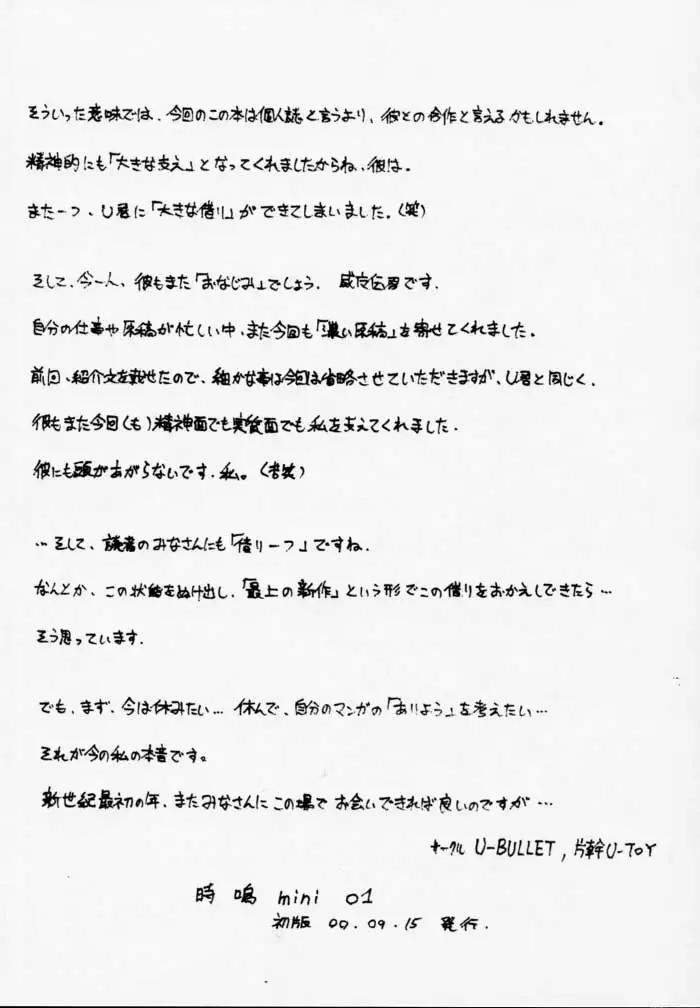 そういった意味では、今回のこの本は個人誌と言うより、彼との合作と言えるかもしれません。
精神的にも「大きな支え」となってくれましたからね、彼は。
また一つ、U君に「大きな借り」ができてしまいました。(笑)
そして、今一人、彼もまた「おなじみ」でしょう。 君です。
自分の仕事や原稿が忙しい中、また今回も「濃い原稿」を寄せてくれました。
前回、紹介文を載せたので、細かな事は今回は省略させていただきますが、U君と同じく、
彼もまた今回(も)精神面でも実質面でも私を支えてくれました。
彼にも頭があがらないです、私。(苦笑)
…そして、読者のみなさんにも「借り一つ」ですね。
なんとか、この状態をぬけ出し、「最上の新作」という形でこの借りをおかえしできたら…
そう思っています。
でも、まず、今は休みたい… 休んで、自分のマンガの「ありよう」を考えたい…
それが今の私の本音です。
新世紀最初の年、またみなさんにこの場でお会いできれば良いのですが…
サークル U-BULLET, 片幹U-TOY
時鳴 mini 01
初版 00.09.15 発行.